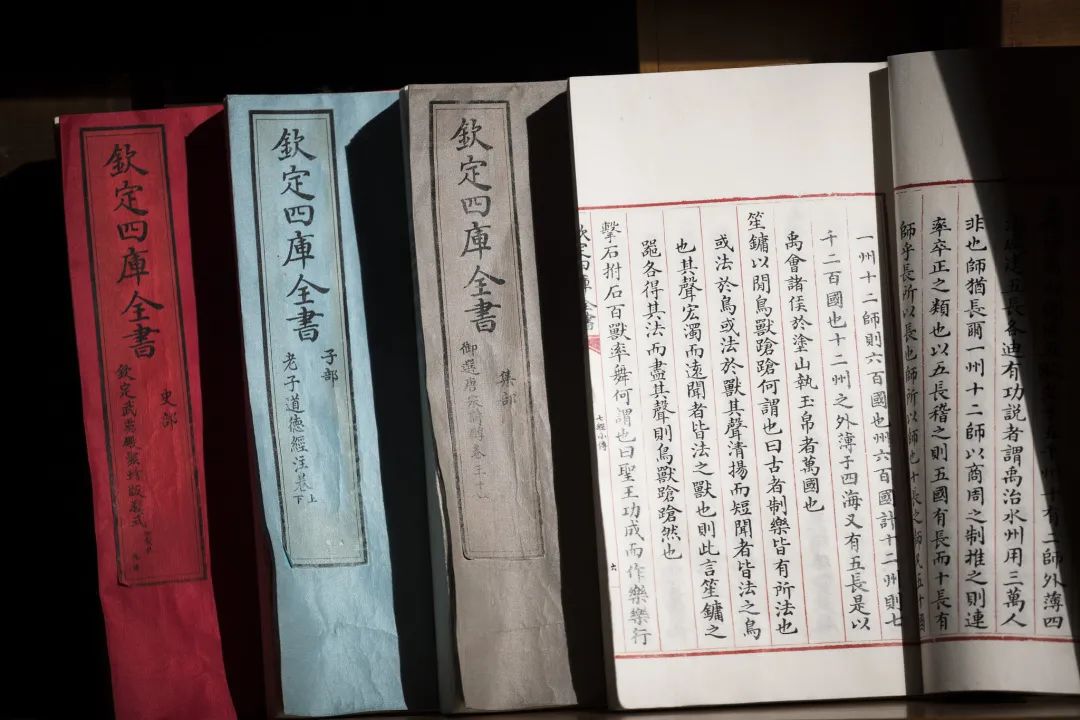 欽定四庫全書
史部
欽定武英殿聚珍版程式
欽定四庫全書
子部
老子道德經注卷上下
欽定四庫全書
集部
州十有二師外薄四
建五長各迪有功説者謂禹治水州用三萬人
非也師猶長爾一州十二師以商周之制推之則連
率卒正之類也以五長稽之則五國有長而十長有
師乎長所以長也師所以師也十長之師凡五十國
一州十二師則六百國也州六百國計十二州則七
千二百國也十二州之外薄于四海又有五長是以
禹會諸侯於塗山執玉帛者萬國也
笙鏞以閒鳥獸蹌蹌何謂也曰古者制樂皆有所法也
或法於鳥或法於獸其聲清揚而短聞者皆法之鳥
也其聲宏濁而遠聞者皆法之獸也則此言笙鏞之
噐各得其法而盡其聲則鳥獸蹌蹌然也
擊石拊石百獸率舞何謂也曰聖王功成而作樂樂行
欽定四庫全書
七經小傳
六